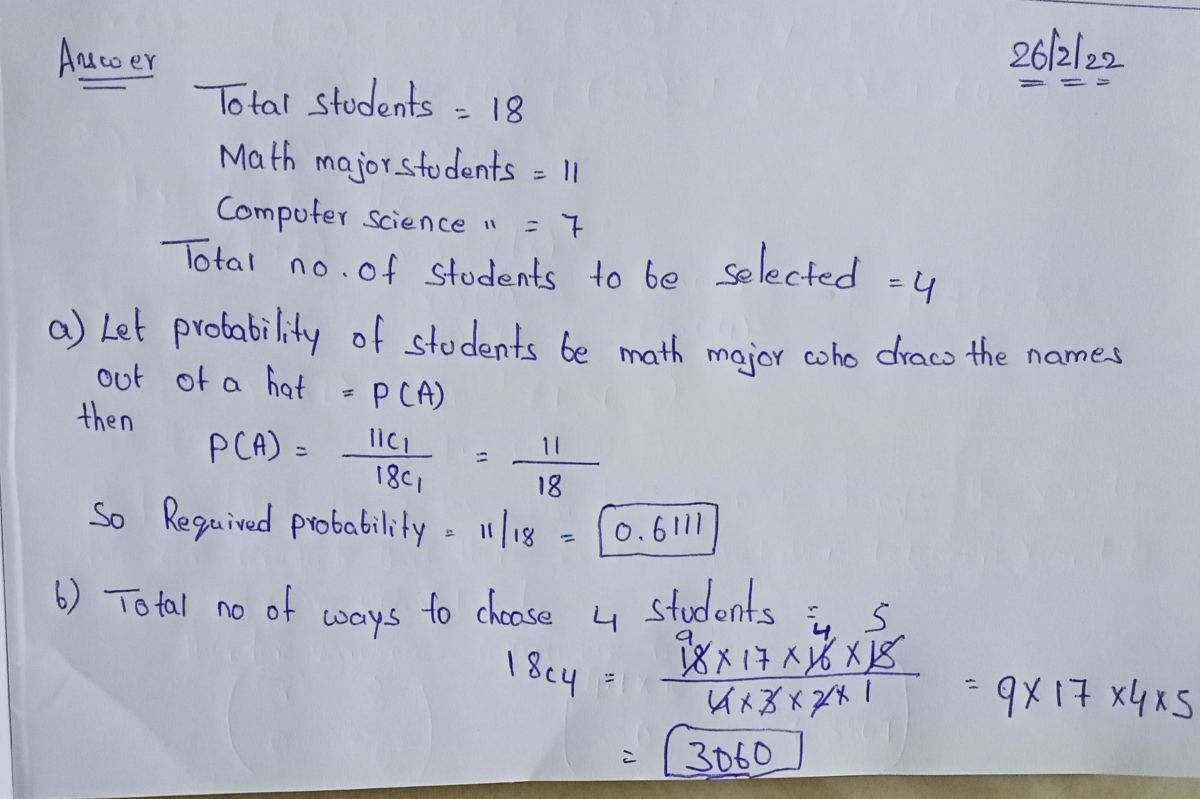 Answer
26/2/22
Total students = 18
Math major students = 11
Computer science " = 7
Total no. of students to be selected = 4
a) Let probability of students be math major who draw the names
out of a hat = P(A)
then
P(A) = 11C1 / 18C1 = 11 / 18
So Required probability = 11/18 = 0.6111
b) Total no of ways to choose 4 students =
9 4 5
18C4 = 18 x 17 x 16 x 15 / 4 x 3 x 2 x 1 = 9 x 17 x 4 x 5
= 3060